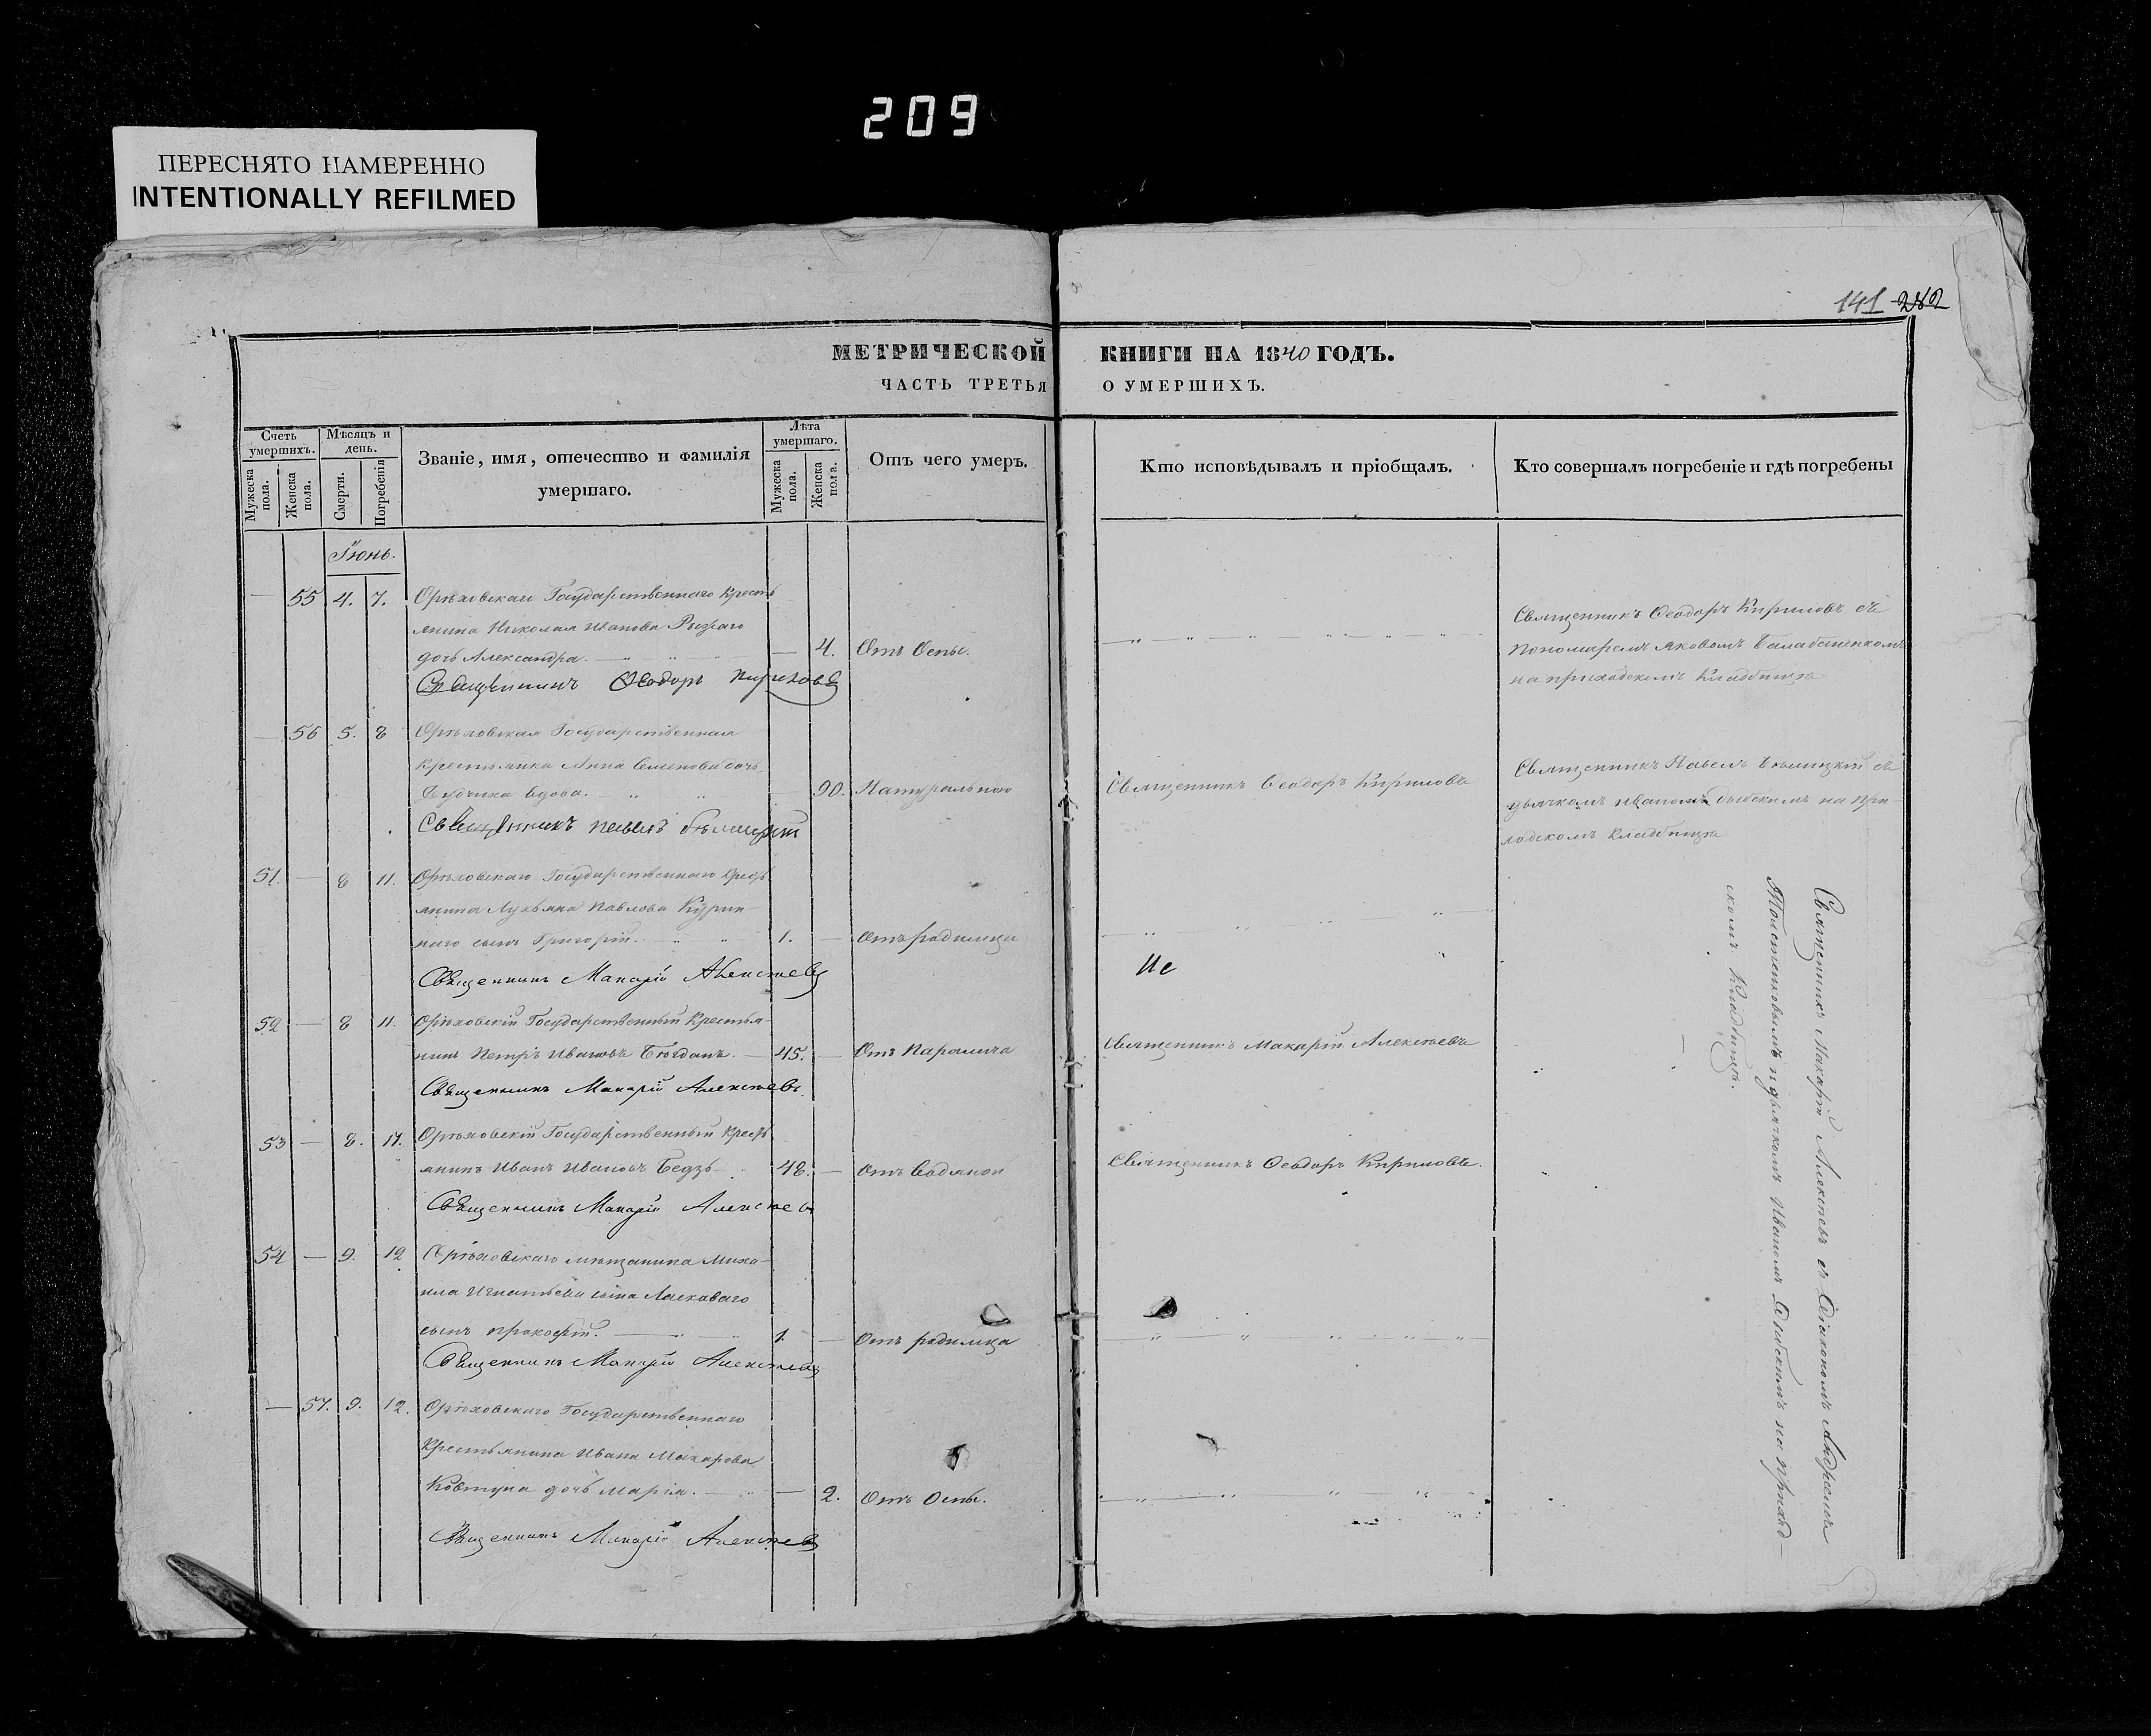 209
ПЕРЕСНЯТО НАМЕРЕННО
INTENTIONALLY REFILMED
141 282
МЕТРИЧЕСКОЙ КНИГИ НА 1840 ГОДЪ.
ЧАСТЬ ТРЕТЬЯ О УМЕРШИХЪ.
Счетъ умершихъ.
Мужеска пола.
Женска пола.
Мѣсяцъ и день.
Смерти.
Погребенія
Званіе, имя, отечество и фамилія
умершаго.
Лѣта умершаго.
Мужеска пола.
Женска пола.
Отъ чего умеръ.
Кто исповѣдывалъ и пріобщалъ.
Кто совершалъ погребеніе и гдѣ погребены
Іюнь.
— 55 4. 7. Орѣховскаго Государственнаго Кресть
янина Николая Иванова
дочь Александра. — 4. Отъ Оспы.
Священникъ Ѳеодоръ Кириловъ
Священникъ Ѳеодоръ Кириловъ съ
Пономаремъ Яковомъ
на приходскомъ Кладбищѣ
— 56 5. 8 Орѣховская Государственная
Крестьянка Анна Семенова дочь
вдова. — 90. Натурально
Священникъ Павелъ
Священникъ Ѳеодоръ Кириловъ
Священникъ Павелъ съ
дьячкомъ Иваномъ на при-
ходскомъ Кладбищѣ
51. — 8 11. Орѣховскаго Государственнаго Кресть
янина Лукьяна Павлова
сынъ Григорій. 1. — Отъ родимца
Священникъ Макарій Алексѣевъ
Не
52 — 8 11. Орѣховскій Государственный Крестья-
нинъ Петръ Ивановъ — 45. — Отъ Паралича
Священникъ Макарій Алексѣевъ.
Священникъ Макарій Алексѣевъ
53 — 8. 11. Орѣховскій Государственный Кресть
янинъ Иванъ Ивановъ 48. — Отъ Водяной
Священникъ Макарій Алексѣевъ
Священникъ Ѳеодоръ Кириловъ.
54 — 9. 12 Орѣховскаго мѣщанина Миха-
ила Игнатьева сына Ласкаваго
сынъ Прокофій. — 1. — Отъ родимца
Священникъ Макарій Алексѣевъ
— 57. 9. 12. Орѣховскаго Государственнаго
Крестьянина Ивана Макарова
Ковтуна дочь Марія. — 2. Отъ Оспы.
Священникъ Макарій Алексѣевъ
Священникъ Макарій Алексѣевъ съ Діакономъ Андреемъ
и дьячкомъ Иваномъ на приход-
скомъ Кладбищѣ.